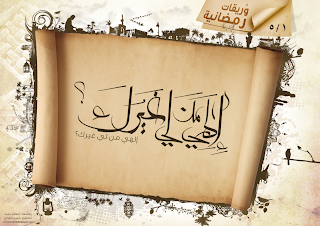 وريقات
رمضانية
٥/١
إلهي من لي غيرك ؟
إلهي من لي غيرك؟